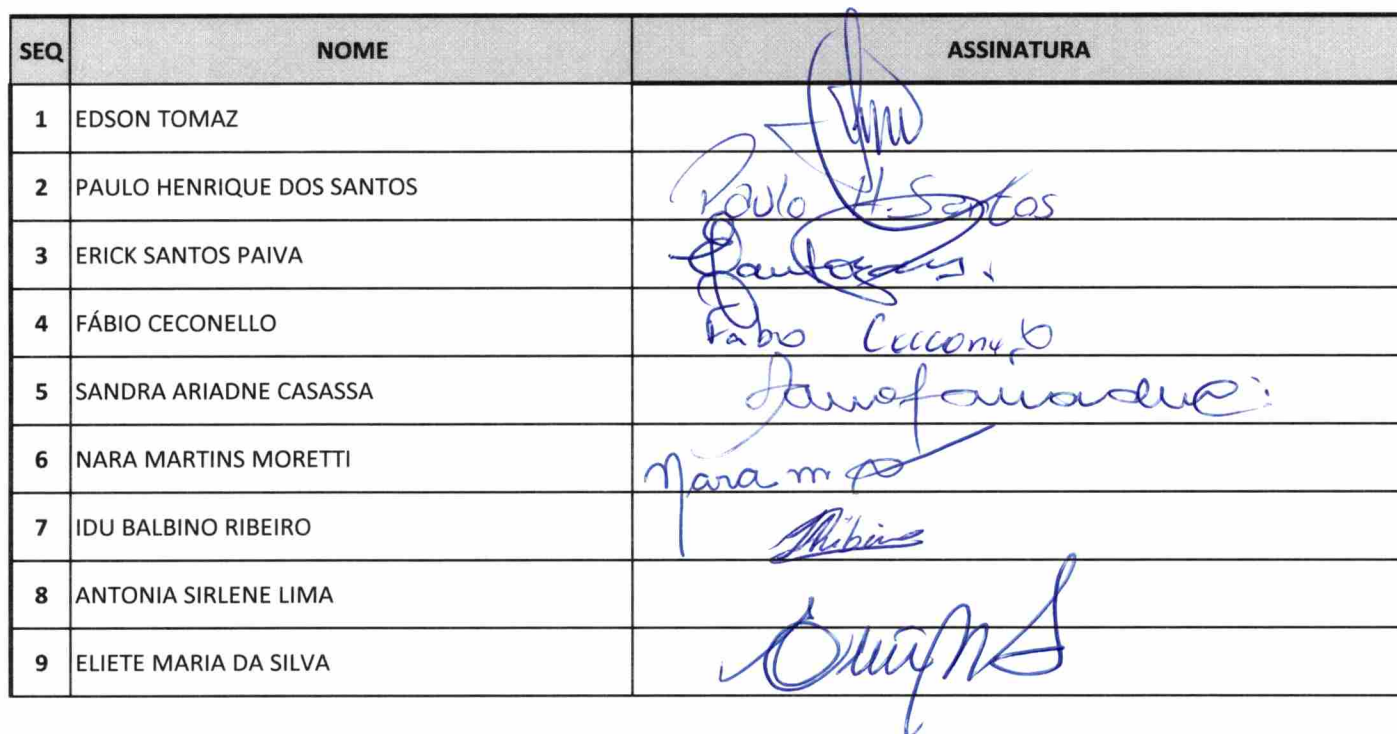 SEQ NOME ASSINATURA
1 EDSON TOMAZ
2 PAULO HENRIQUE DOS SANTOS Paulo H. Santos
3 ERICK SANTOS PAIVA
4 FÁBIO CECONELLO Fabio
5 SANDRA ARIADNE CASASSA
6 NARA MARTINS MORETTI Nara m
7 IDU BALBINO RIBEIRO
8 ANTONIA SIRLENE LIMA
9 ELIETE MARIA DA SILVA